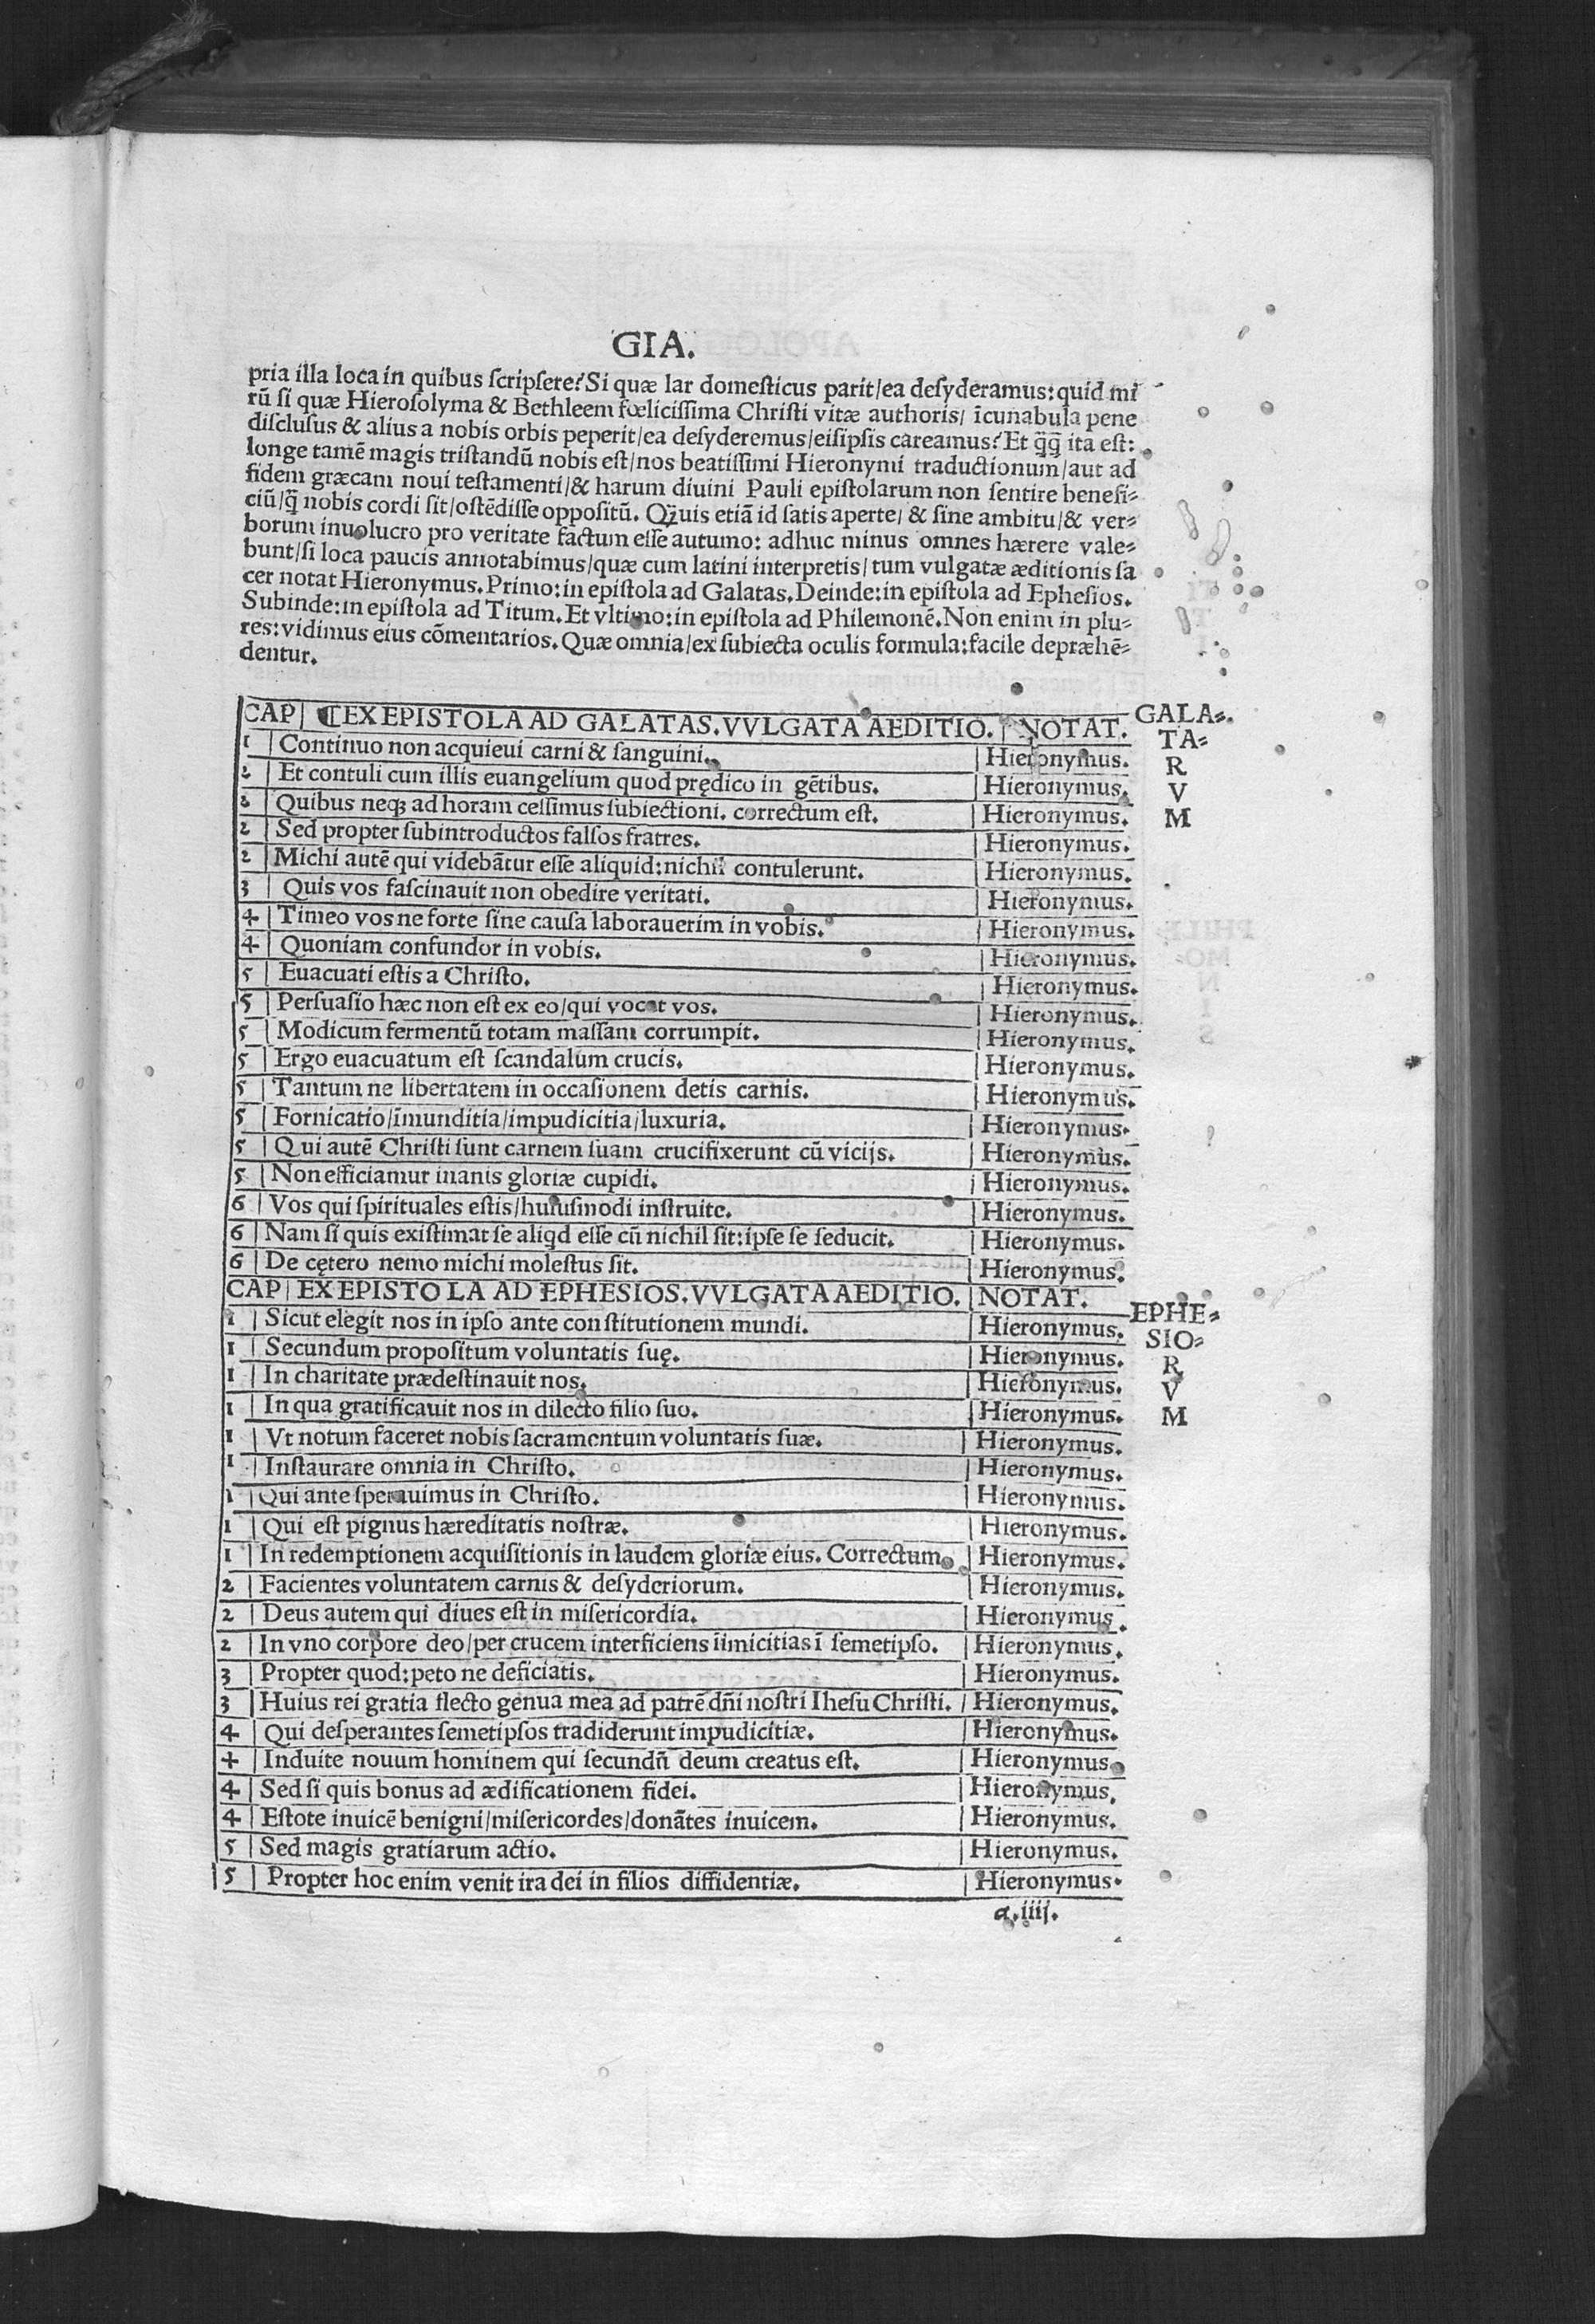 GIA.
pria illa loca in quibus scripsere? Si quæ lar domesticus parit/ea desyderamus: quid mi
rū si quæ Hierosolyma & Bethleem fœlicissima Christi vitæ authoris/ īcunabula pene
disclusus & alius a nobis orbis peperit/ea desyderemus/eisipsis careamus? Et q̄q̄ ita est:
longe tamē magis tristandū nobis est/nos beatissimi Hieronymi traductionum/aut ad
fidem græcam noui testamenti/& harum diuini Pauli epistolarum non sentire benefi-
ciū/q̄ nobis cordi sit/ostēdisse oppositū. Qꝗuis etiā id satis aperte/ & sine ambitu/& ver-
borum inuolucro pro veritate factum esse autumo: adhuc minus omnes hærere vale-
bunt/si loca paucis annotabimus/quæ cum latini interpretis/tum vulgatæ æditionis sa
cer notat Hieronymus. Primo: in epistola ad Galatas. Deinde: in epistola ad Ephesios.
Subinde: in epistola ad Titum. Et vltimo: in epistola ad Philemonē. Non enim in plu-
res: vidimus eius cōmentarios. Quæ omnia/ex subiecta oculis formula: facile depræhē-
dentur.
CAP| ⸿EX EPISTOLA AD GALATAS. VVLGATA AEDITIO. | NOTAT.
GALA-
TA-
R
V
M
1 | Continuo non acquieui carni & sanguini. | Hieronymus.
2 | Et contuli cum illis euangelium quod prędico in gētibus. | Hieronymus.
2 | Quibus neqꝫ ad horam cessimus subiectioni. correctum est. | Hieronymus.
2 | Sed propter subintroductos falsos fratres. | Hieronymus.
2 | Michi autē qui videbātur esse aliquid: nichil contulerunt. | Hieronymus.
3 | Quis vos fascinauit non obedire veritati. | Hieronymus.
4 | Timeo vos ne forte sine causa laborauerim in vobis. | Hieronymus.
4 | Quoniam confundor in vobis. | Hieronymus.
5 | Euacuati estis a Christo. | Hieronymus.
5 | Persuasio hæc non est ex eo/qui vocat vos. | Hieronymus.
5 | Modicum fermentū totam massam corrumpit. | Hieronymus.
5 | Ergo euacuatum est scandalum crucis. | Hieronymus.
5 | Tantum ne libertatem in occasionem detis carnis. | Hieronymus.
5 | Fornicatio/īmunditia/impudicitia/luxuria. | Hieronymus.
5 | Qui autē Christi sunt carnem suam crucifixerunt cū vicijs. | Hieronymus.
5 | Non efficiamur inanis gloriæ cupidi. | Hieronymus.
6 | Vos qui spirituales estis/huiusmodi instruite. | Hieronymus.
6 | Nam si quis existimat se aliqd esse cū nichil sit: ipse se seducit. | Hieronymus.
6 | De cętero nemo michi molestus sit. | Hieronymus.
CAP| EX EPISTOLA AD EPHESIOS. VVLGATA AEDITIO. | NOTAT.
EPHE-
SIO-
R
V
M
1 | Sicut elegit nos in ipso ante constitutionem mundi. | Hieronymus.
1 | Secundum propositum voluntatis suę. | Hieronymus.
1 | In charitate prædestinauit nos. | Hieronymus.
1 | In qua gratificauit nos in dilecto filio suo. | Hieronymus.
1 | Vt notum faceret nobis sacramentum voluntatis suæ. | Hieronymus.
1 | Instaurare omnia in Christo. | Hieronymus.
1 | Qui ante sperauimus in Christo. | Hieronymus.
1 | Qui est pignus hæreditatis nostræ. | Hieronymus.
1 | In redemptionem acquisitionis in laudem gloriæ eius. Correctum. | Hieronymus.
2 | Facientes voluntatem carnis & desyderiorum. | Hieronymus.
2 | Deus autem qui diues est in misericordia. | Hieronymus.
2 | In vno corpore deo/per crucem interficiens īimicitias ī semetipso. | Hieronymus.
3 | Propter quod: peto ne deficiatis. | Hieronymus.
3 | Huius rei gratia flecto genua mea ad patrē dn̄i nostri Ihesu Christi. | Hieronymus.
4 | Qui desperantes semetipsos tradiderunt impudicitiæ. | Hieronymus.
4 | Induite nouum hominem qui secundū deum creatus est. | Hieronymus.
4 | Sed si quis bonus ad ædificationem fidei. | Hieronymus.
4 | Estote inuicē benigni/misericordes/donātes inuicem. | Hieronymus.
5 | Sed magis gratiarum actio. | Hieronymus.
5 | Propter hoc enim venit ira dei in filios diffidentiæ. | Hieronymus.
a.iiij.